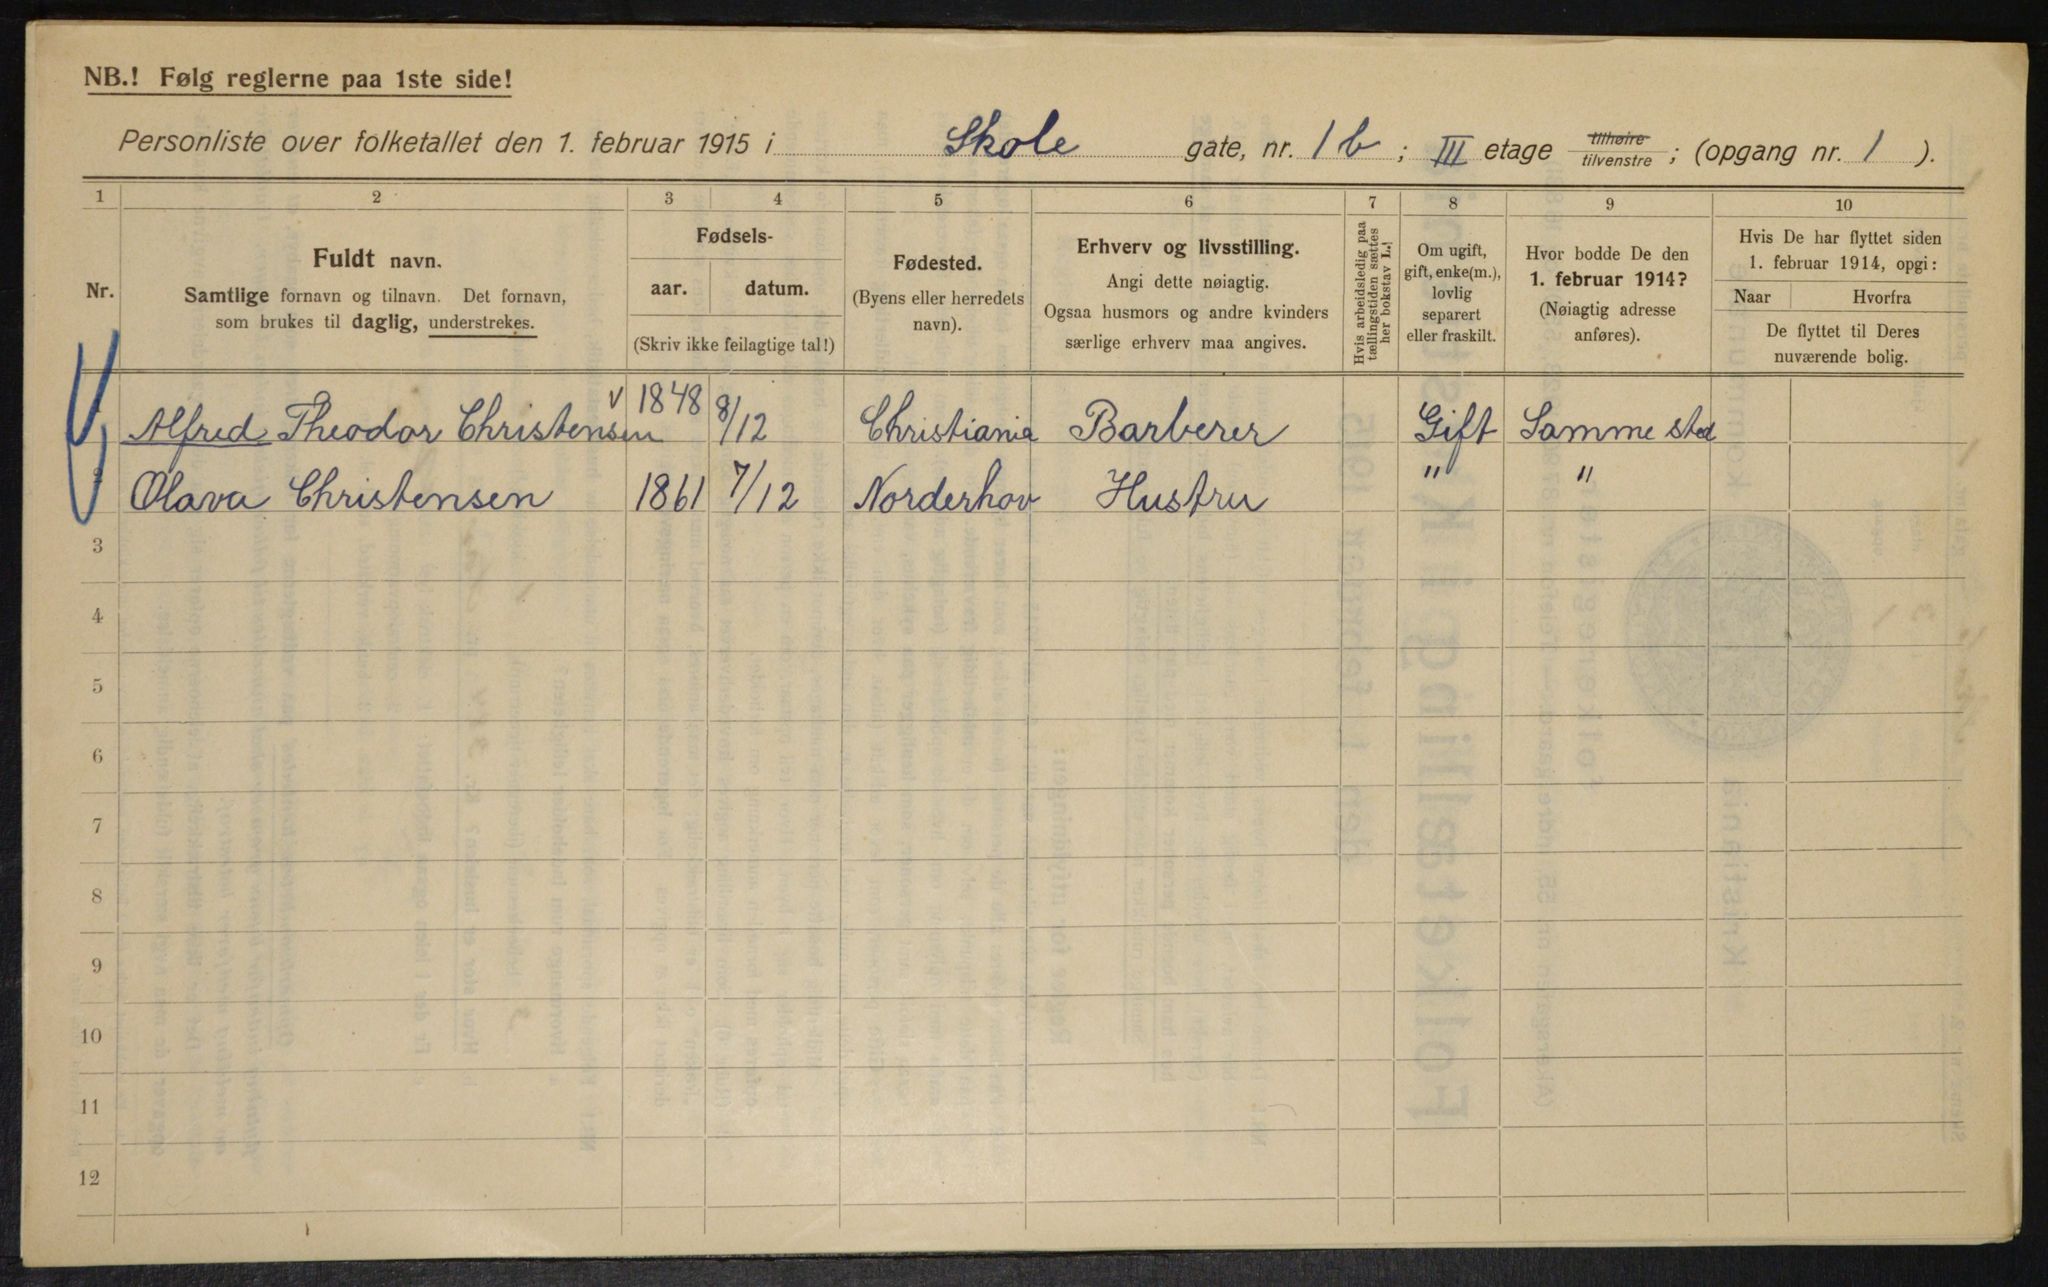 NB.! Følg reglerne paa 1ste side!
Personliste over folketallet den 1. februar 1915 i Skole gate, nr. 1b; III etage tilhøire tilvenstre; (opgang nr. 1).
1 2 3 4 5 6 7 8 9 10
Nr.
Fuldt navn.
Samtlige fornavn og tilnavn. Det fornavn,
som brukes til daglig, understrekes.
Fødsels-
aar. datum.
(Skriv ikke feilagtige tal!)
Fødested.
(Byens eller herredets
navn).
Erhverv og livsstilling.
Angi dette nøiagtig.
Ogsaa husmors og andre kvinders
særlige erhverv maa angives.
Hvis arbeidsledig paa
tællingstiden sættes
her bokstav L.!
Om ugift,
gift, enke(m.),
lovlig
separert
eller fraskilt.
Hvor bodde De den
1. februar 1914?
(Nøiagtig adresse
anføres).
Hvis De har flyttet siden
1. februar 1914, opgi:
Naar Hvorfra
De flyttet til Deres
nuværende bolig.
Alfred Theodor Christensen v 1848 8/12 Christiania Barberer Gift Samme sted
Olava Christensen 1861 7/12 Norderhov Hustru " "
3
4
5
6
7
8
9
10
11
12